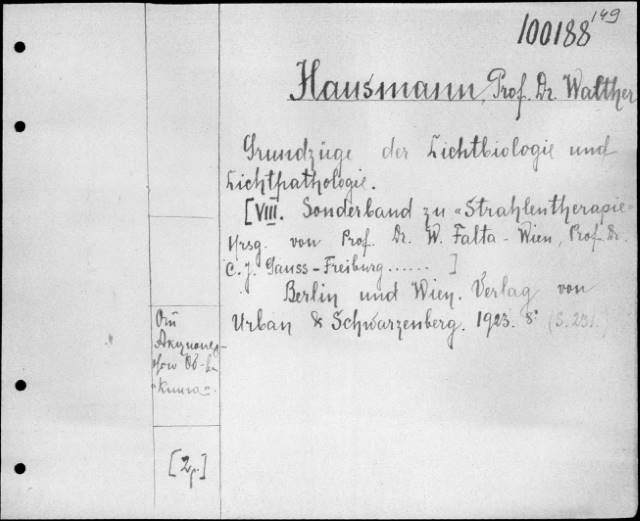 100188
149
Hausmann, Prof. Dr. Walther
Grundzüge der Lichtbiologie und
Lichtpathologie.
[VIII. Sonderband zu «Strahlentherapie»
Hrsg. von Prof. Dr. W. Falta - Wien, Prof. Dr.
C. J. Gauss - Freiburg ...... ]
Berlin und Wien. Verlag von
Urban & Schwarzenberg. 1923. 8°
От
Акционер-
„Книга".
[2 р.]